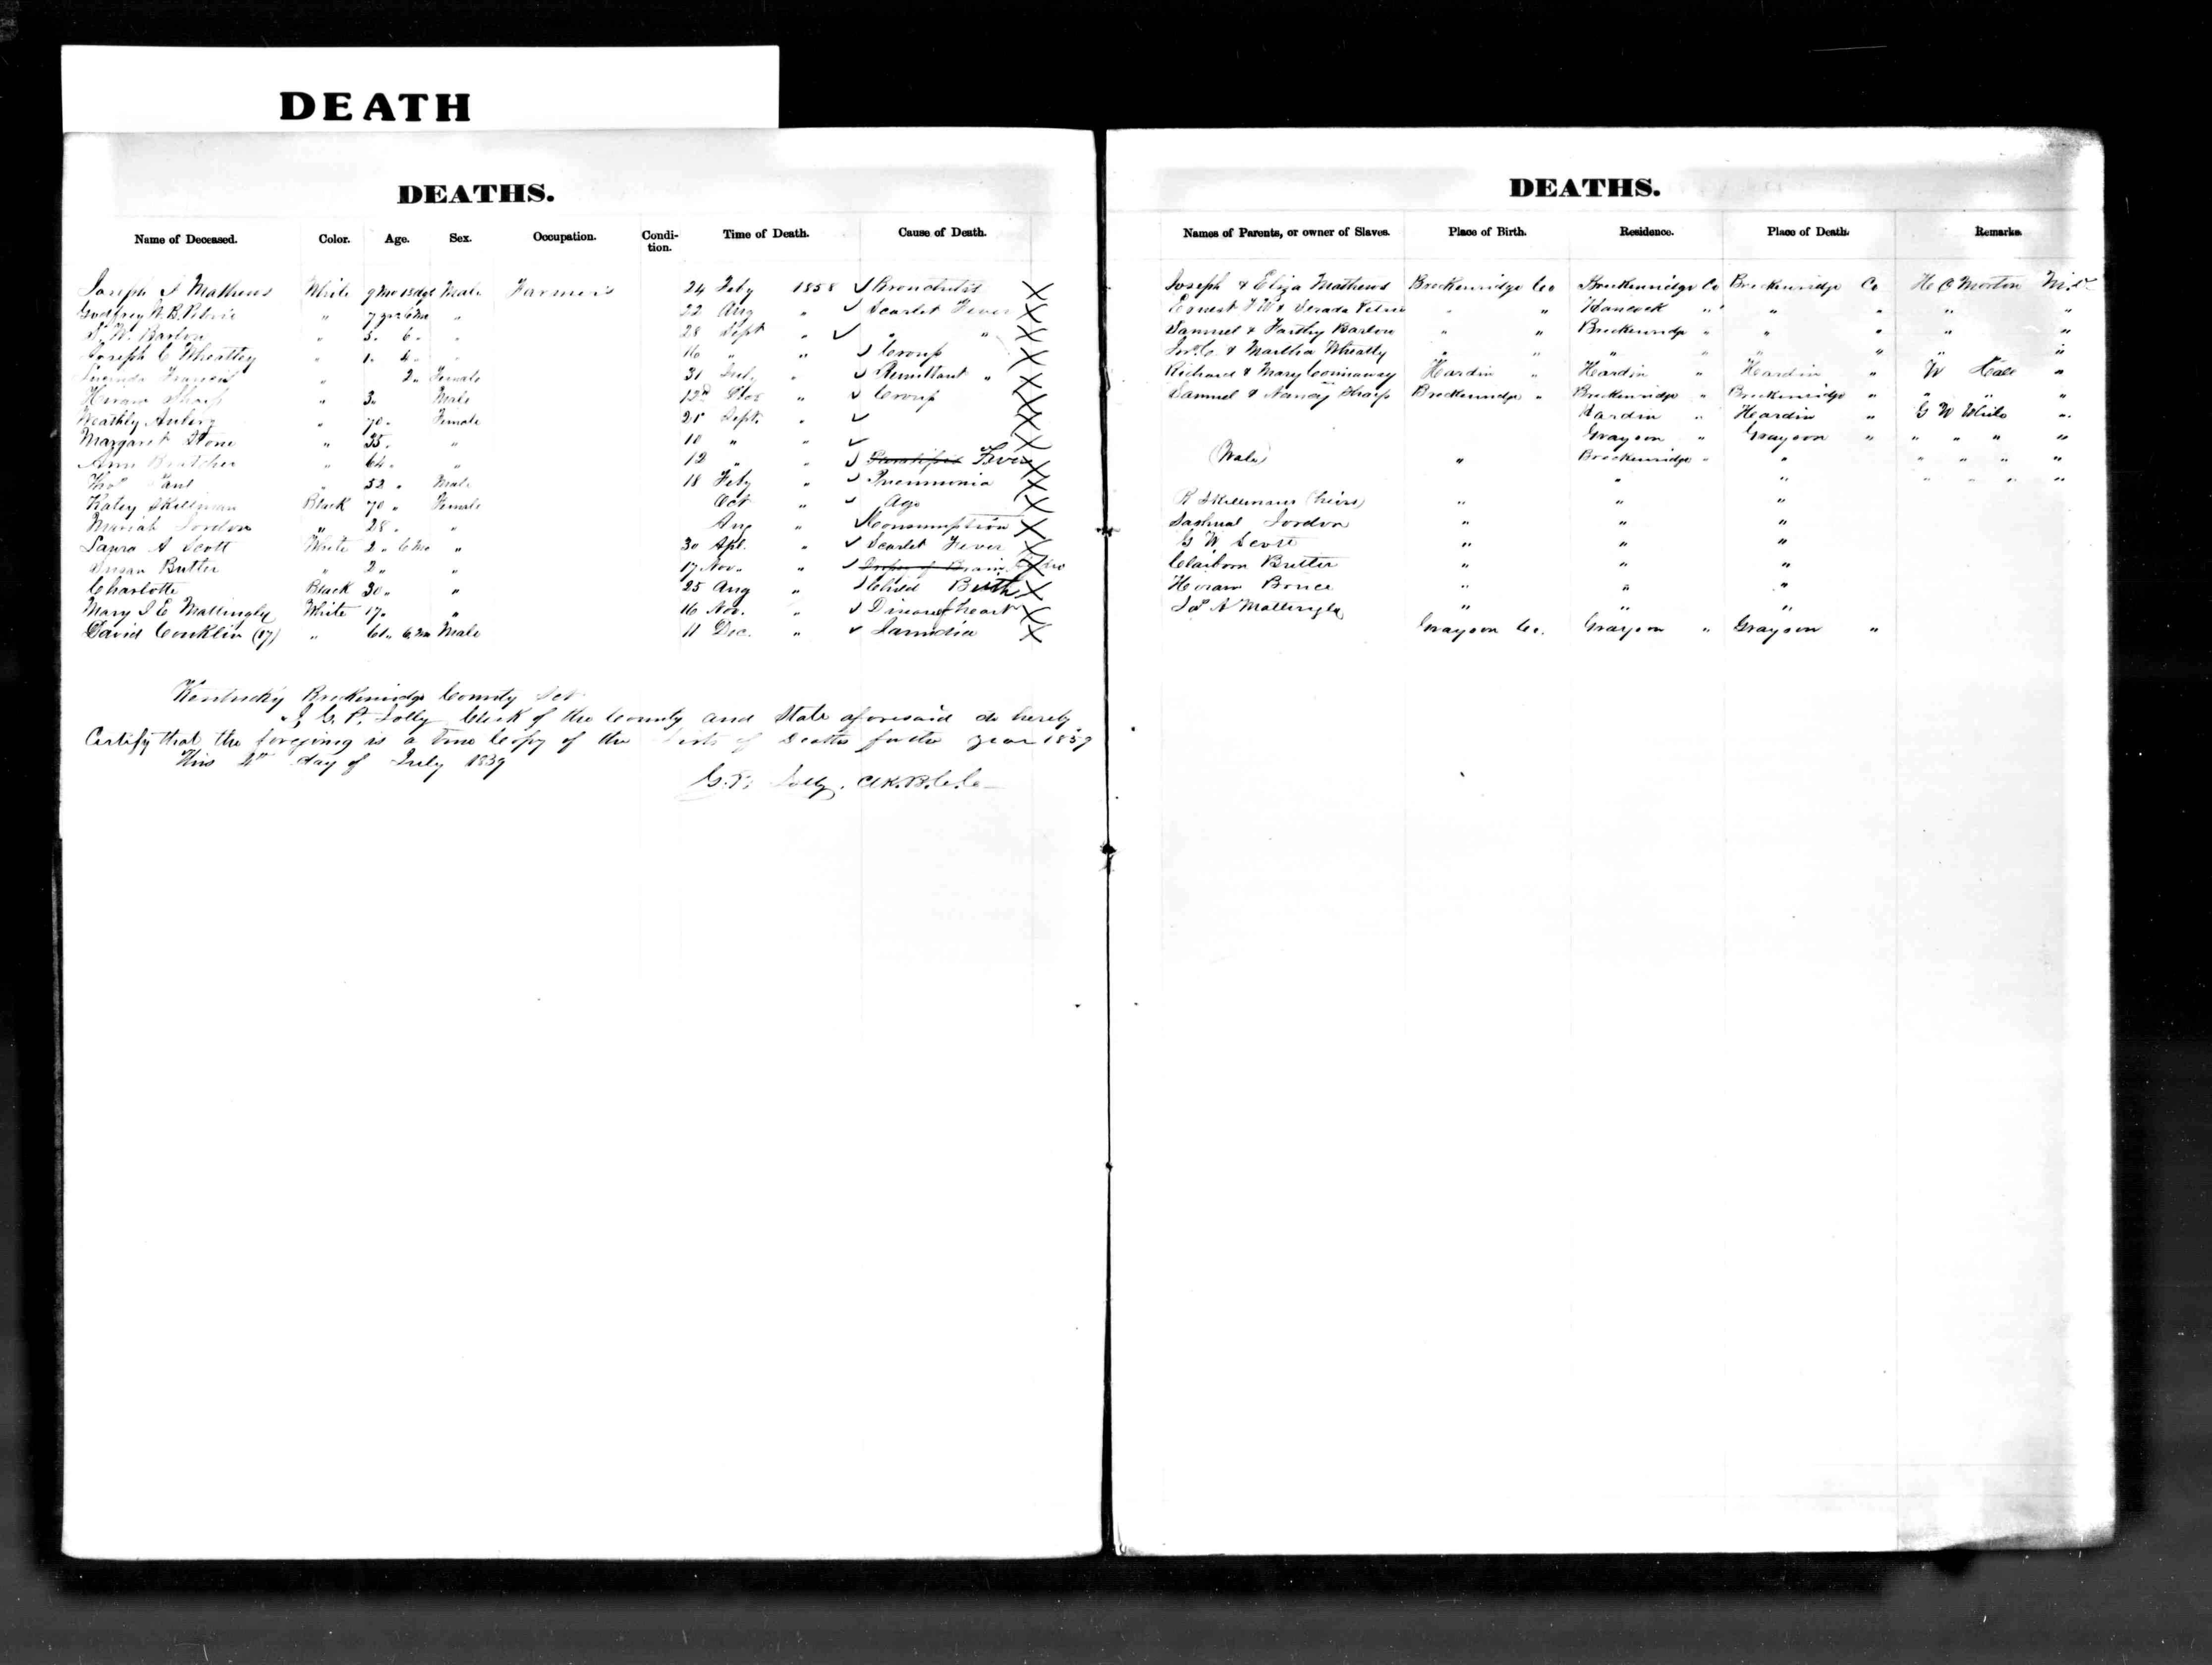 DEATH
DEATHS.
Name of Deceased. Color. Age. Sex. Occupation. Condi-tion. Time of Death. Cause of Death.
Joseph I Mathews White 9 Mo 13 dys Male Farmers 24 Feby 1858 ✓ Bronchitis X
Godfrey W.B. Petrie " 7 yrs 6 Mo " 22 Aug " ✓ Scarlet Fever X
S. W. Barlow " 3. 6. " 28 Sept " ✓ " " X
Joseph C Wheatley " 1. 4. " 16 " " ✓ Croup X
Lucinda Francis " 2 " Female 31 July " ✓ Remittant " X
Hiram Sharp " 3 " Male 12th " ✓ Croup X
Aubery " 70 " Female 25 Sept. " ✓ X
Margaret Stone " 35. " 10 " " ✓ X
Ann Bratcher " 64. " 12 " " ✓ Fever X
Thos " 52 " Male 18 Feby " ✓ Pneumonia X
Katey Skillman Black 70 " Female Oct " ✓ Age X
Mariah Jordon " 28 " " Aug " ✓ Consumption X
Laura A Scott White 2 " 6 Mo " 30 Apl. " ✓ Scarlet Fever X
Susan Butler " 2 " " 17 Nov. " ✓ of Brain X
Charlotte Black 30 " " 25 Aug " ✓ Child Birth X
Mary I E Mattingly White 17 " " 16 Nov. " ✓ Disease of heart X
David Conklin (17) " 61 " 6 Mo Male 11 Dec. " ✓ X
Kentucky Breckenridge County Sct
I G. P. Jolly Clerk of the County and State aforesaid do hereby
Certify that the foregoing is a True Copy of the Lists of Deaths for the year 1859
This day of July 1859
G. P. Jolly. Clk. B.C.C.
DEATHS.
Names of Parents, or owner of Slaves. Place of Birth. Residence. Place of Death. Remarks.
Joseph & Eliza Mathews Breckenridge Co Breckenridge Co Breckenridge Co H C Morton
Ernest F W & Petrie " " Hancock " " " " "
Samuel & Barlow " " Breckenridge " " " " "
Jno. C. & Martha Wheatly " " " " " " " "
Richard & Mary Hardin " Hardin " Hardin " W Hall "
Samuel & Nancy Sharp Breckenridge " Breckenridge " Breckenridge " " " "
Hardin " Hardin " G W White "
Grayson " Grayson " " " " "
(Wale) " Breckenridge " " " " " "
" " " " " "
R Skillmans (heirs) " " "
Jordon " " "
G W Scott " " "
Claiborn Butler " " "
Hiram Bruce " " "
A Mattingly " " "
Grayson Co. Grayson " Grayson "